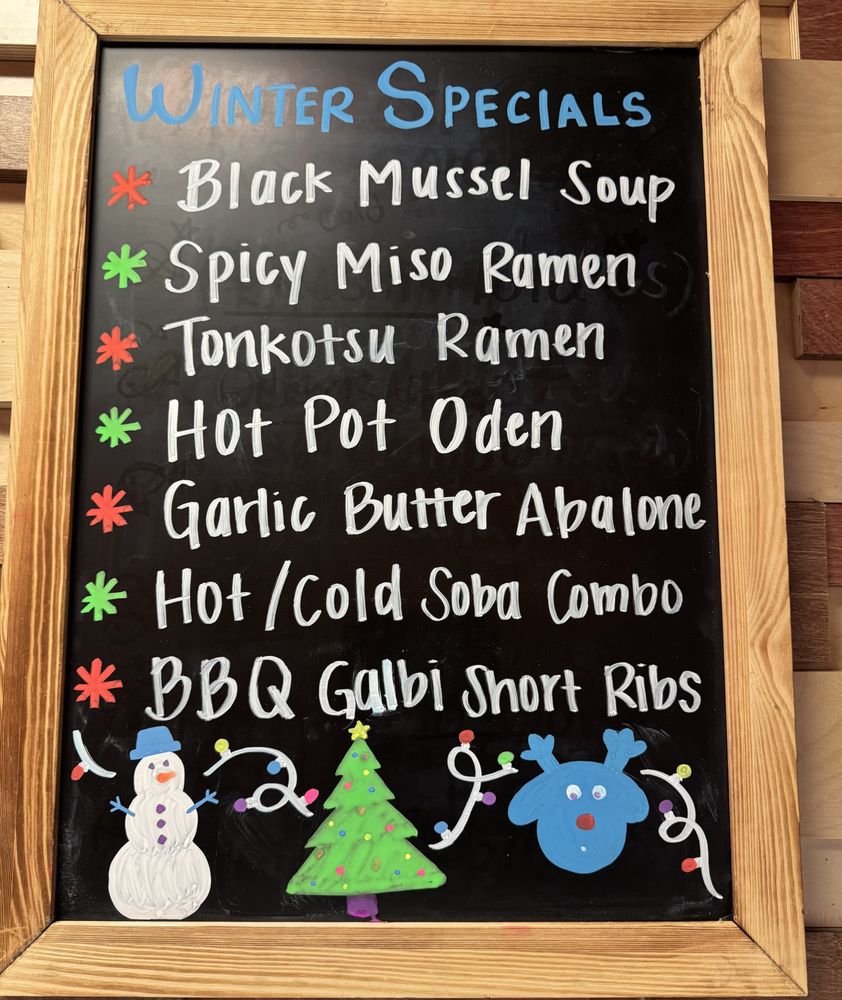 WINTER SPECIALS
Black Mussel Soup
Spicy Miso Ramen
Tonkotsu Ramen
Hot Pot Oden
Garlic Butter Abalone
Hot/Cold Soba Combo
BBQ Galbi Short Ribs